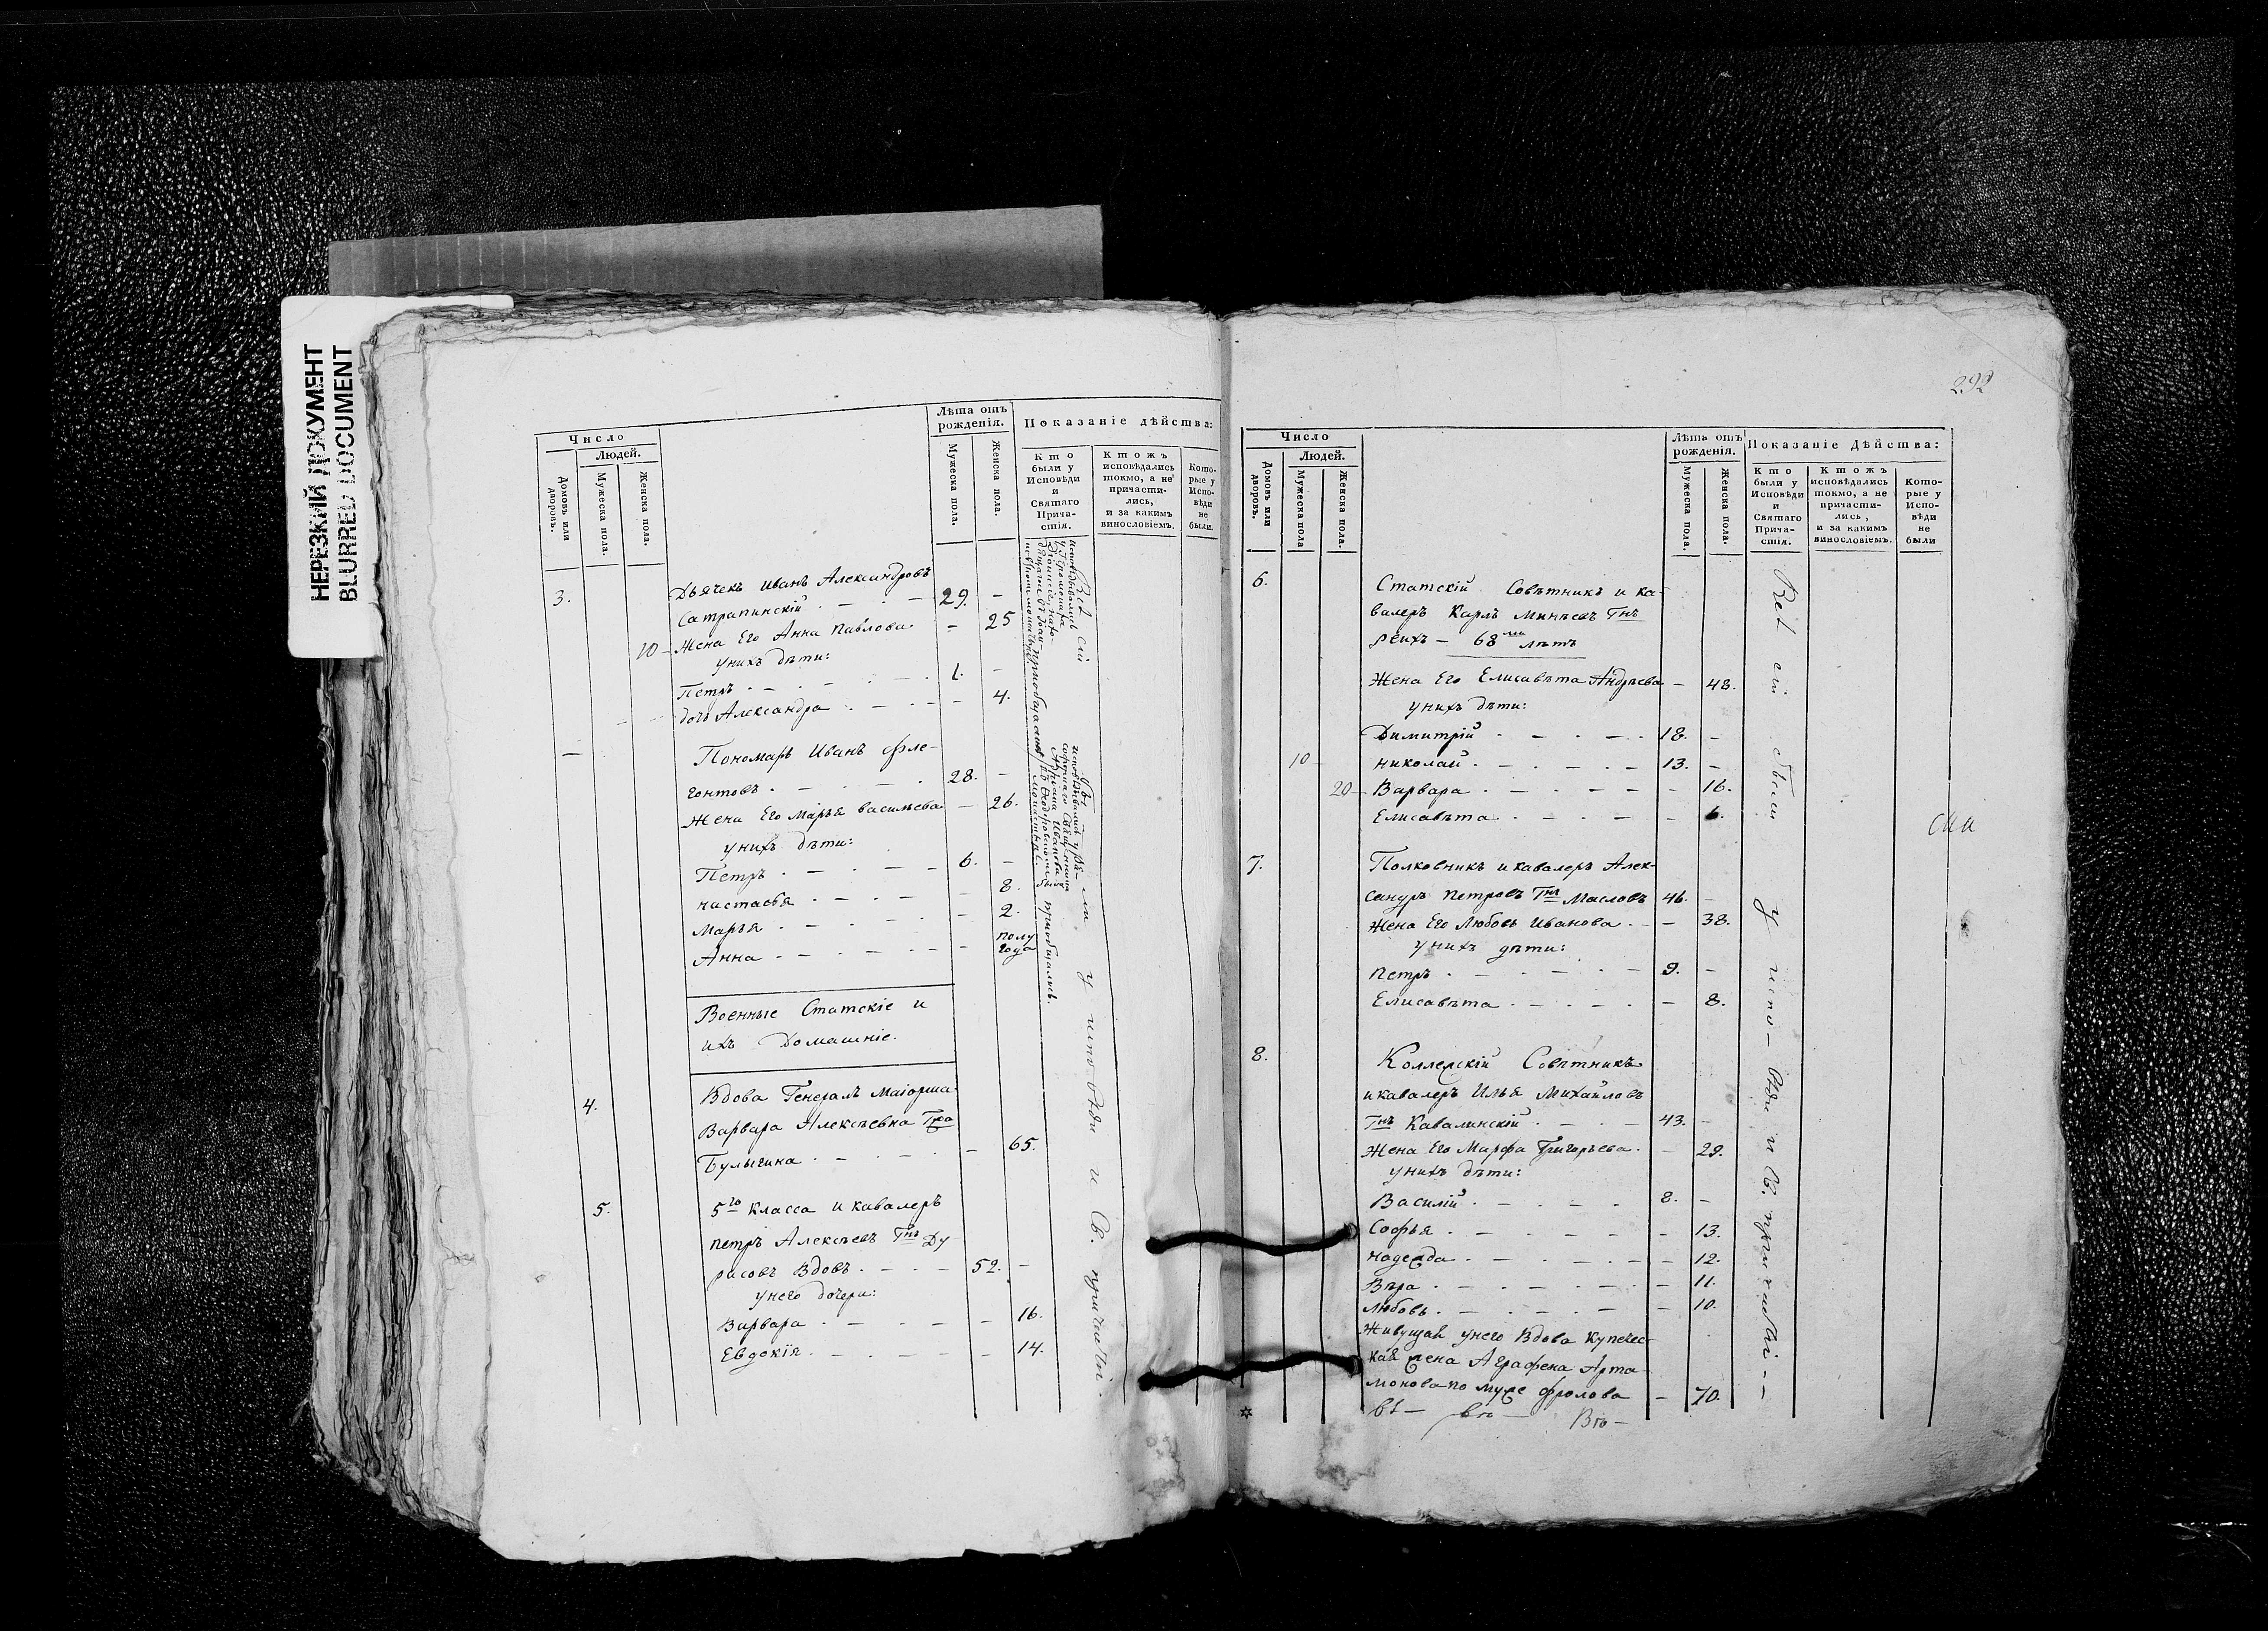 НЕРЕЗКИЙ ДОКУМЕНТ
BLURRED DOCUMENT
Число
Людей.
Домовъ или дворовъ.
Мужеска пола.
Женска пола.
Лѣта отъ рожденія.
Мужеска пола.
Женска пола.
Показаніе дѣйства:
Кто были у Исповѣди и Святаго Прича-стія.
Ктожъ исповѣдались токмо, а не причасти-лись, и за какимъ винословіемъ.
Кото-рые у Испо-вѣди не были.
3. Дьячекъ Иванъ Александровъ
Сатрапинскій 29. -
10 - Жена Его Анна Павлова - 25
у нихъ дѣти:
Петръ 1. -
дочь Александра - 4.
Пономарь Иванъ Фле-
гонтовъ 28. -
Жена Его Марья Васильева - 26.
у нихъ дѣти:
Петръ 6. -
Настасья - 8.
Марья - 2.
Анна - полу года
Военные Статскіе и
ихъ Домашніе.
4. Вдова Генералъ Маіорша
Варвара Алексѣевна Гжа
Булыгина - 65.
5. 5го класса и кавалеръ
Петръ Алексѣевъ Гнъ Ду-
расовъ Вдовъ 52. -
у него дочери:
Варвара - 16.
Евдокія - 14.
Всѣ сіи были у исповѣди и Св. причастія.
292
Число
Людей.
Домовъ или дворовъ.
Мужеска пола
Женска пола.
Лѣта отъ рожденія.
Мужеска пола.
Женска пола.
Показаніе дѣйства:
Кто были у Исповѣди и Святаго Прича-стія.
Ктожъ исповѣдались токмо, а не причасти-лись, и за какимъ винословіемъ.
Кото-рые у Испо-вѣди не были
6. Статскій Совѣтникъ и Ка-
валеръ Карлъ Минѣевъ Гнъ
Рейхъ - 68 лѣтъ
Жена Его Елисавѣта Андрѣева - 48.
у нихъ дѣти:
Димитрій 18. -
10 - Николай 13. -
20 - Варвара - 16.
Елисавѣта - 6.
7. Полковникъ и кавалеръ Алек-
сандръ Петровъ Гнъ Масловъ 46. -
Жена Его Любовь Иванова - 38.
у нихъ дѣти:
Петръ 9. -
Елисавѣта - 8.
8. Коллежскій Совѣтникъ
и кавалеръ Илья Михайловъ
Гнъ Кавалинскій 43. -
Жена Его Марфа Григорьева - 29.
у нихъ дѣти:
Василій 8. -
Софья - 13.
Надежда - 12.
Вѣра - 11.
Любовь - 10.
Живущая у него Вдова Купечес-
кая жена Аграфена Арта-
монова по мужѣ Фролова - 70.
Всѣ сіи были у испо-вѣди и Св. причастія